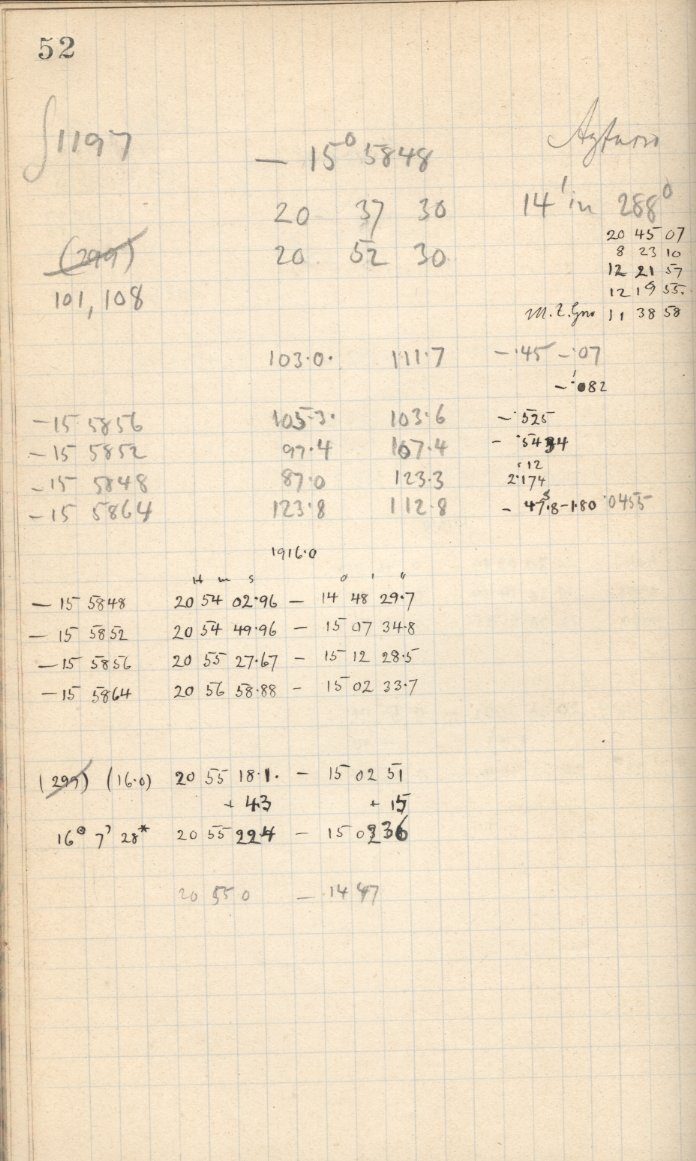 52
∫1197
− 15° 5848
20 37 30 14' in 288°
(299) 20 52 30
20 45 07
8 23 10
101, 108 12 21 57
12 19 55.
M. T. Grn 11 38 58
103.0. 111.7 −.45 −.07
−'.082
−15 5856 105.3. 103.6 −.525
−15 5852 97.4 107.4 −
.12
−15 5848 87.0 123.3 2.174
−15 5864 123.8 112.8 − 47.8−1.80 .0455
1916.0
H m s ° ' "
− 15 5848 20 54 02.96 − 14 48 29.7
− 15 5852 20 54 49.96 − 15 07 34.8
−15 5856 20 55 27.67 − 15 12 28.5
−15 5864 20 56 58.88 − 15 02 33.7
(299) (16.0) 20 55 18.1. − 15 02 51
+ 43 + 15
16ᵈ 7ʰ 28* 20 55 22.4 − 15 0 36
20 55 0 − 14 47